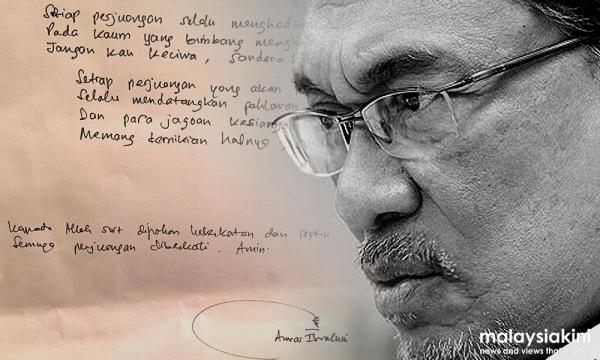 Setiap perjuangan selalu
Pada kaum yang bimbang
Jangan kau keciwa, Saudara
Setiap perjuangan yang akan
Selalu mendatangkan pahlawan
Dan para jagoan kesiangan
Memang demikian halnya
Kepada Allah swt dipohon keberkatan dan
Semoga perjuangan diberkati. Amin.
Anwar Ibrahim
malaysiakini
news and views that